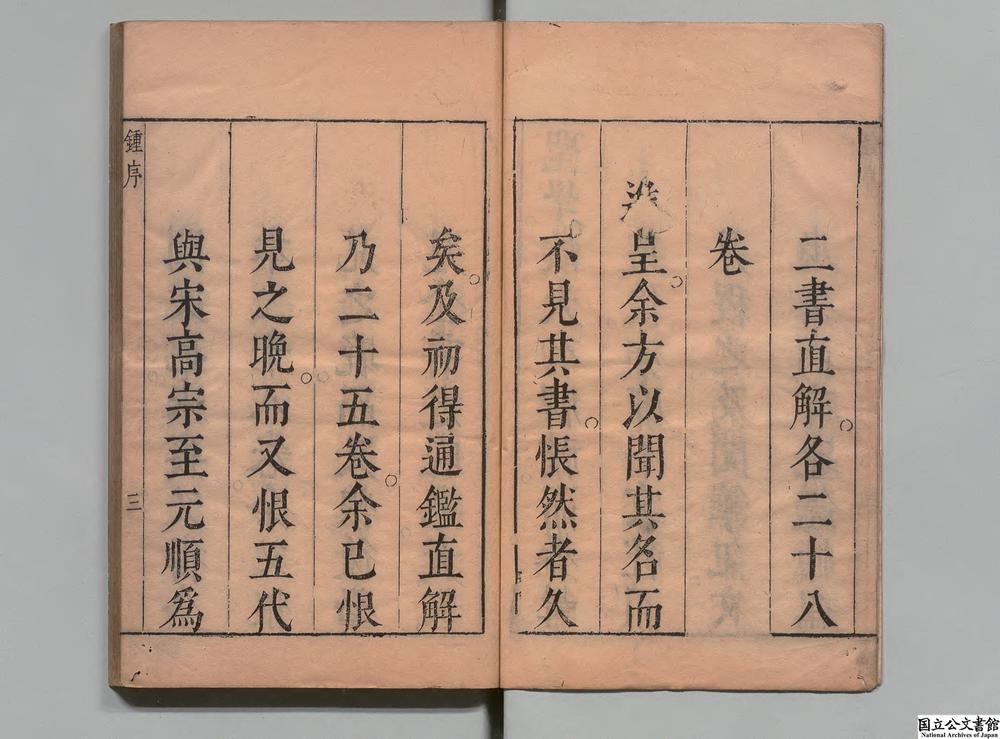 二書直解各二十八
卷
進呈。余方以聞其名而
不見其書。悵然者久
矣。及初得通鑑直解
乃二十五卷。余已恨
見之晚。而又恨五代
與宋高宗至元順為
鍾序
三
国立公文書館
National Archives of Japan